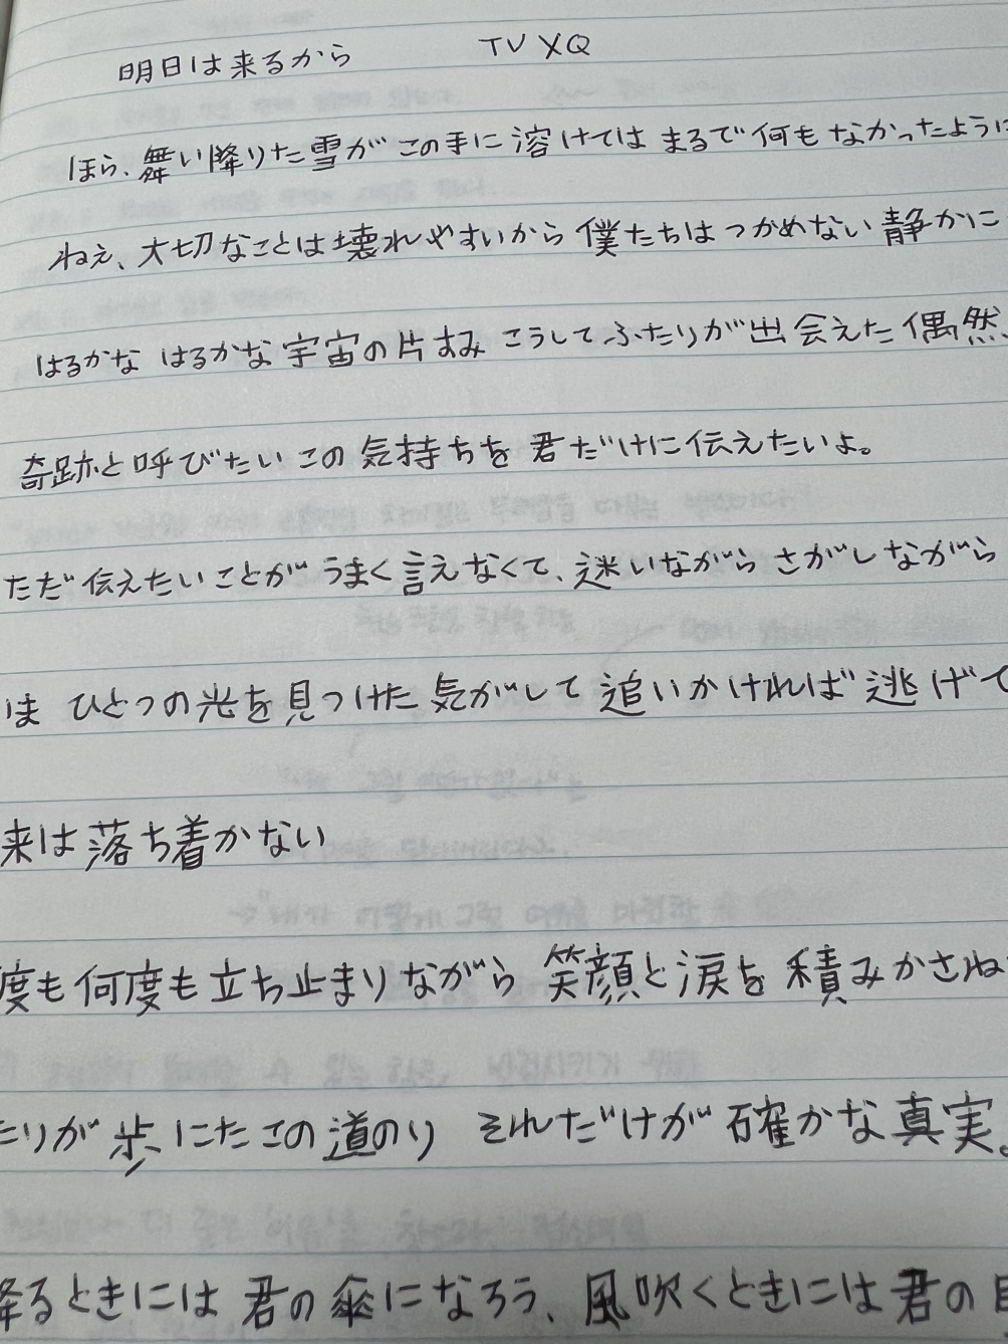 明日は来るから TVXQ
ほら、舞い降りた雪が この手に 溶けては まるで 何も なかったように
ねえ、大切なことは壊れやすいから 僕たちは つかめない 静かに
はるかな はるかな 宇宙の片すみ こうして ふたりが 出会えた 偶然
奇跡と呼びたい この 気持ちを 君だけに伝えたいよ。
ただ 伝えたいことが うまく言えなくて、迷いながら さがしながら
は ひとつの光を見つけた 気がして 追いかければ 逃げて
来は 落ち着かない
度も何度も立ち止まりながら 笑顔と涙を 積みかさね
たりが 歩にたこの道のり それだけが 確かな真実。
降るときには 君の傘になろう、風吹くときには君の